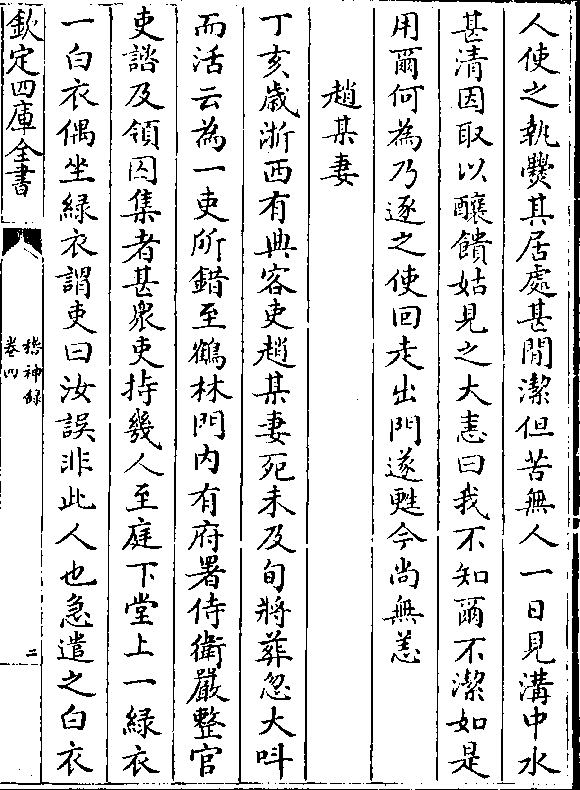 人使之執爨其居處甚閒潔但苦無人一日見溝中水
甚清因取以釀饋姑見之大恚曰我不知爾不潔如是
用爾何為乃逐之使回走出門遂甦今尚無恙
趙某妻
丁亥歲浙西有典客吏趙某妻死未及旬將葬忽大呌
而活云為一吏所錯至鶴林門内有府署侍衛嚴整官
吏諮及領囚集者甚衆吏持幾人至庭下堂上一綠衣
一白衣偶坐綠衣謂吏曰汝誤非此人也急遣之白衣
欽定四庫全書
稽神録
卷四
二